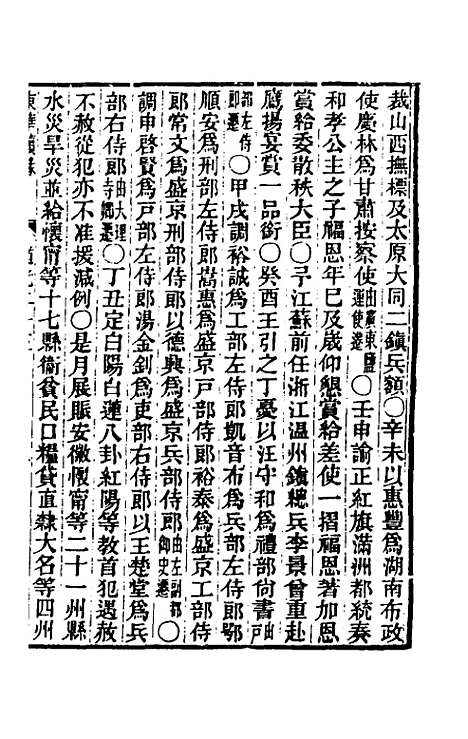 裁山西撫標及太原大同二鎮兵額○辛未以惠豐爲湖南布政
使慶林爲甘肅按察使由廣東鹽運使遷○壬申諭正紅旗滿洲都統奏
和孝公主之子福恩年已及歲仰懇賞給差使一摺福恩著加恩
賞給委散秩大臣○予江蘇前任浙江温州鎮總兵李景曾重赴
鷹揚宴賞一品銜○癸酉王引之丁憂以汪守和爲禮部尙書由戸
部左侍郎遷○甲戌調裕誠爲工部左侍郎凱音布爲兵部左侍郎鄂
順安爲刑部左侍郎嵩惠爲盛京戸部侍郎裕泰爲盛京工部侍
郎常文爲盛京刑部侍郎以德興爲盛京兵部侍郎由左副都御史遷○
調申啓賢爲戸部左侍郎湯金釗爲吏部右侍郎以王楚堂爲兵
部右侍郎由大理寺卿遷○丁丑定白陽白蓮八卦紅陽等教首犯遇赦
不赦從犯亦不准援減例○是月展賑安徽懷甯等二十一州縣
水災旱災並給懷甯等十七縣衞貧民口糧貸直隸大名等四州
東華續錄